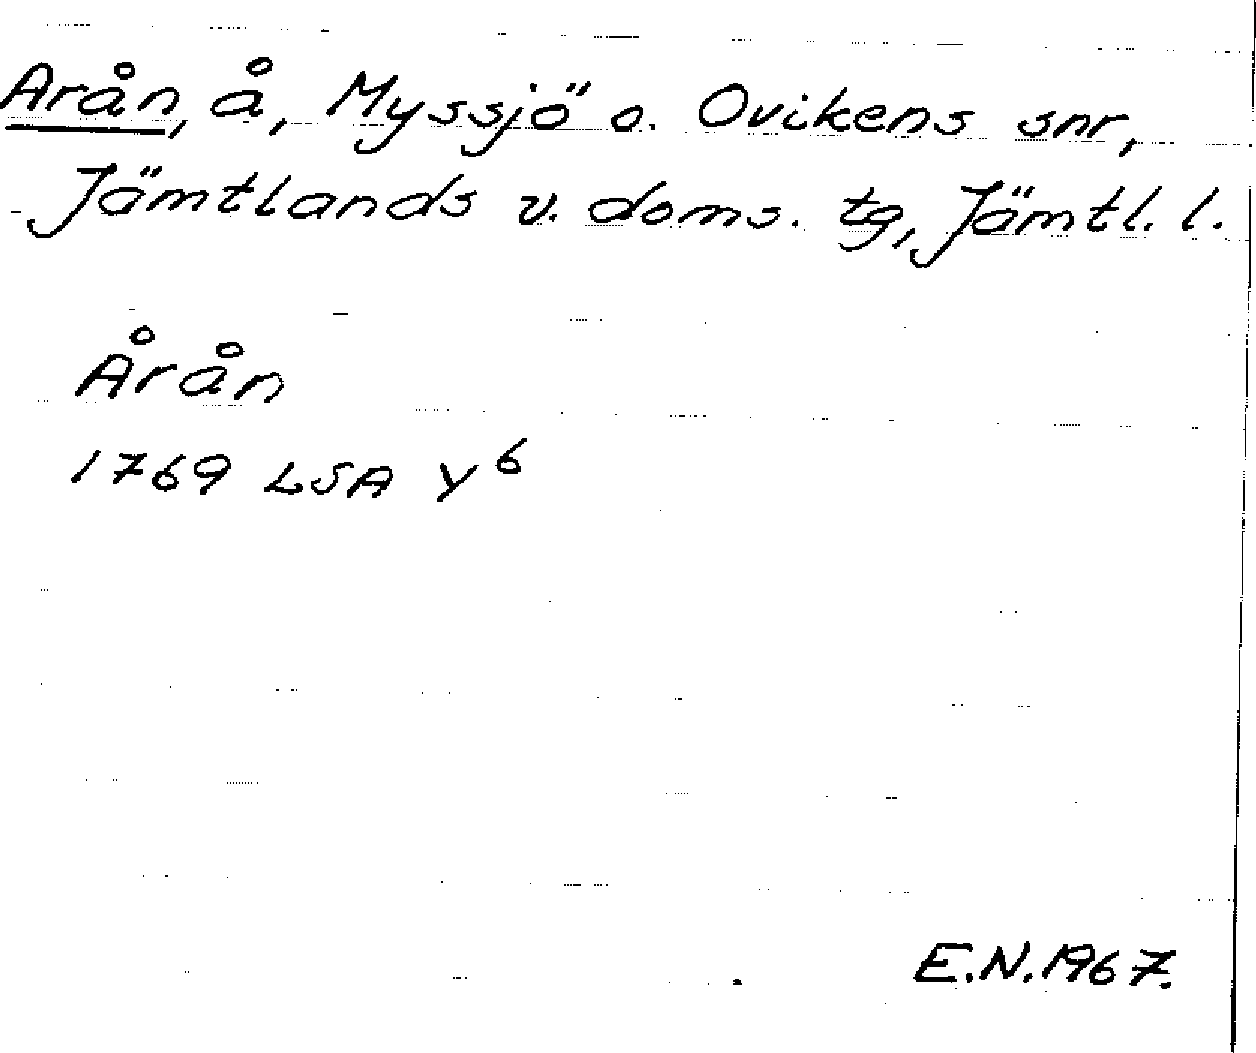 Arån, å, Myssjö o. Ovikens snr,
Jämtlands v. doms. tg, Jämtl. l.
Årån
1769 LSA Y6
E.N. 1967.